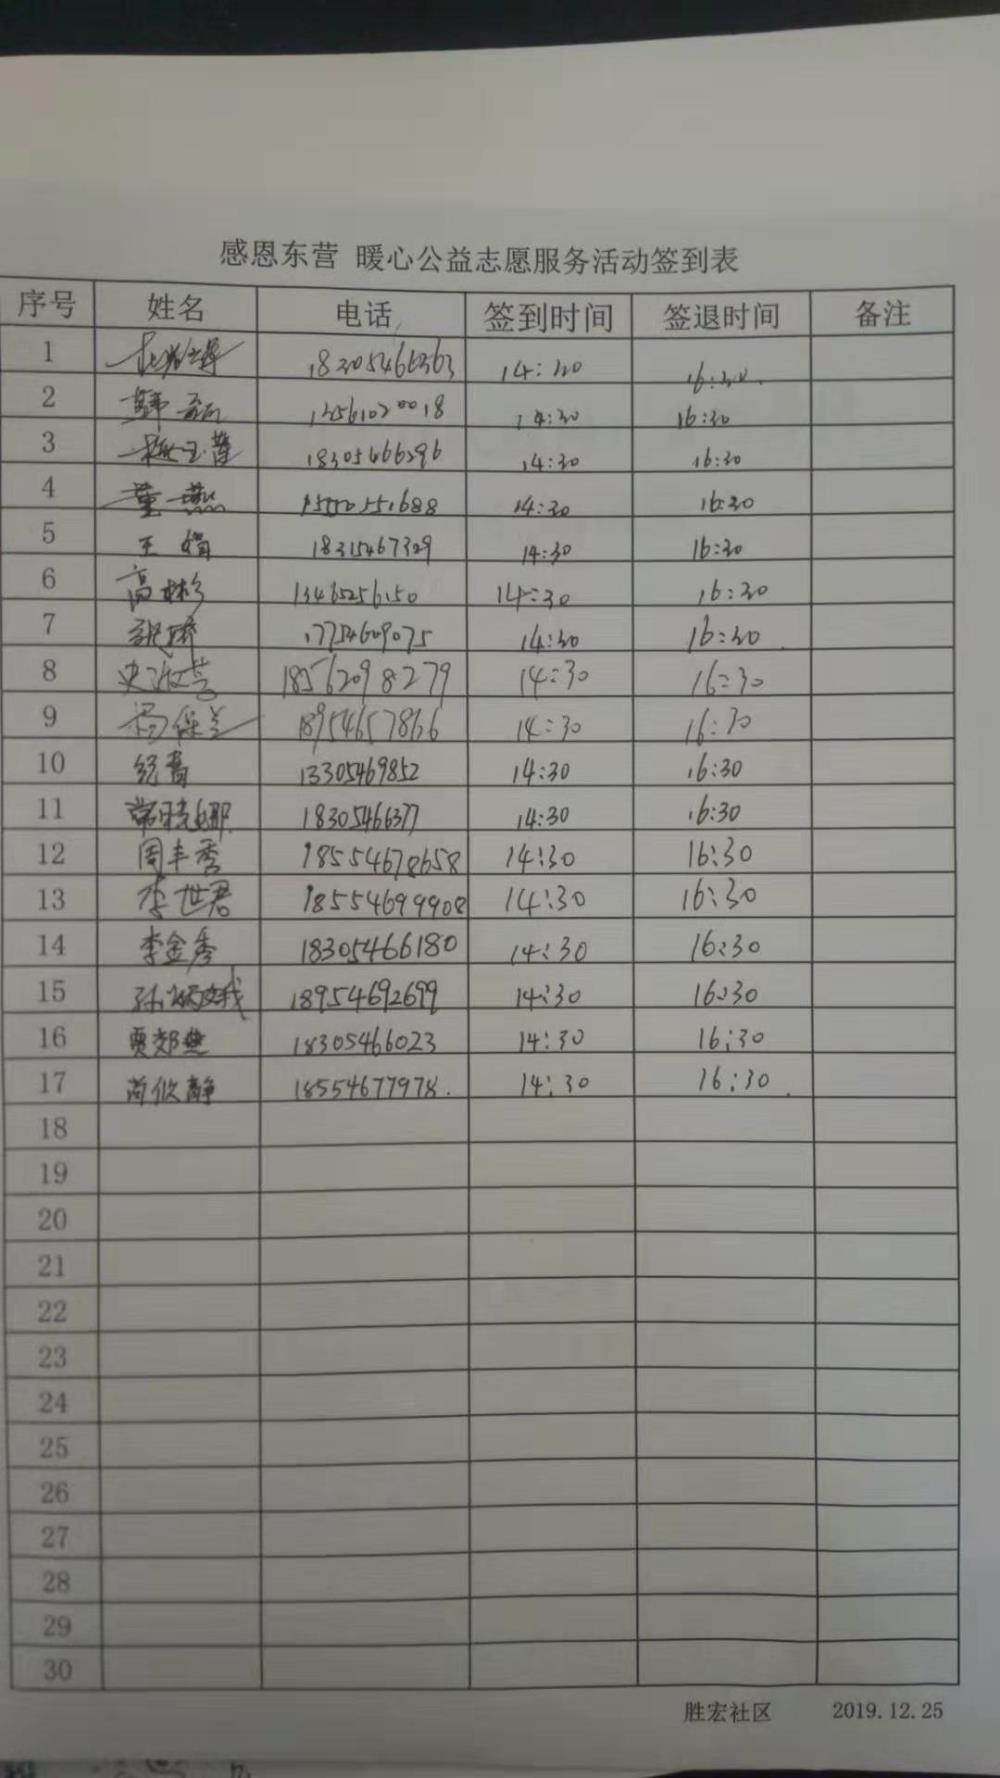 感恩东营 暖心公益志愿服务活动签到表
序号 姓名 电话 签到时间 签退时间 备注
1 18305466363 14:30 16:30
2 14:30 16:30
3 18305466296 14:30 16:30
4 董燕 14:30 16:30
5 王娟 14:30 16:30
6 高彬 13465256150 14:30 16:30
7 17754609075 14:30 16:30
8 18562098279 14:30 16:30
9 杨保兰 18954657866 14:30 16:30
10 纪青 13305469852 14:30 16:30
11 常晓娜 18305466377 14:30 16:30
12 周丰秀 18554678658 14:30 16:30
13 李世君 18554699908 14:30 16:30
14 李金秀 18305466180 14:30 16:30
15 18954692699 14:30 16:30
16 18305466023 14:30 16:30
17 18554677978. 14:30 16:30
18
19
20
21
22
23
24
25
26
27
28
29
30
胜宏社区 2019.12.25